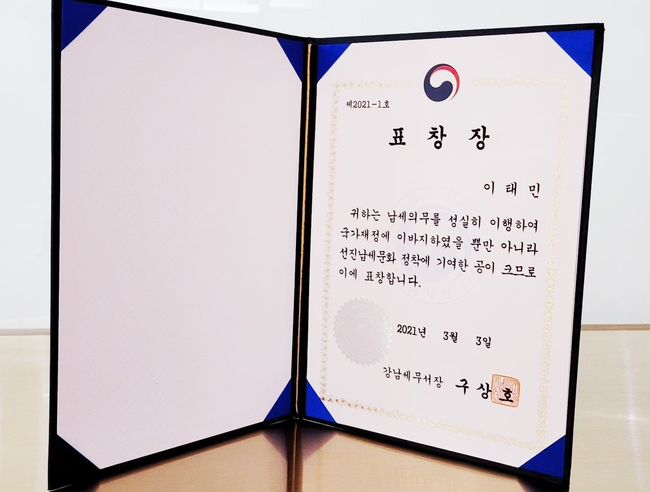 제2021-1호
표 창 장
이 태 민
귀하는 납세의무를 성실히 이행하여
국가재정에 이바지하였을 뿐만 아니라
선진납세문화 정착에 기여한 공이 크므로
이에 표창합니다.
2021년 3월 3일
강남세무서장 구 상 호